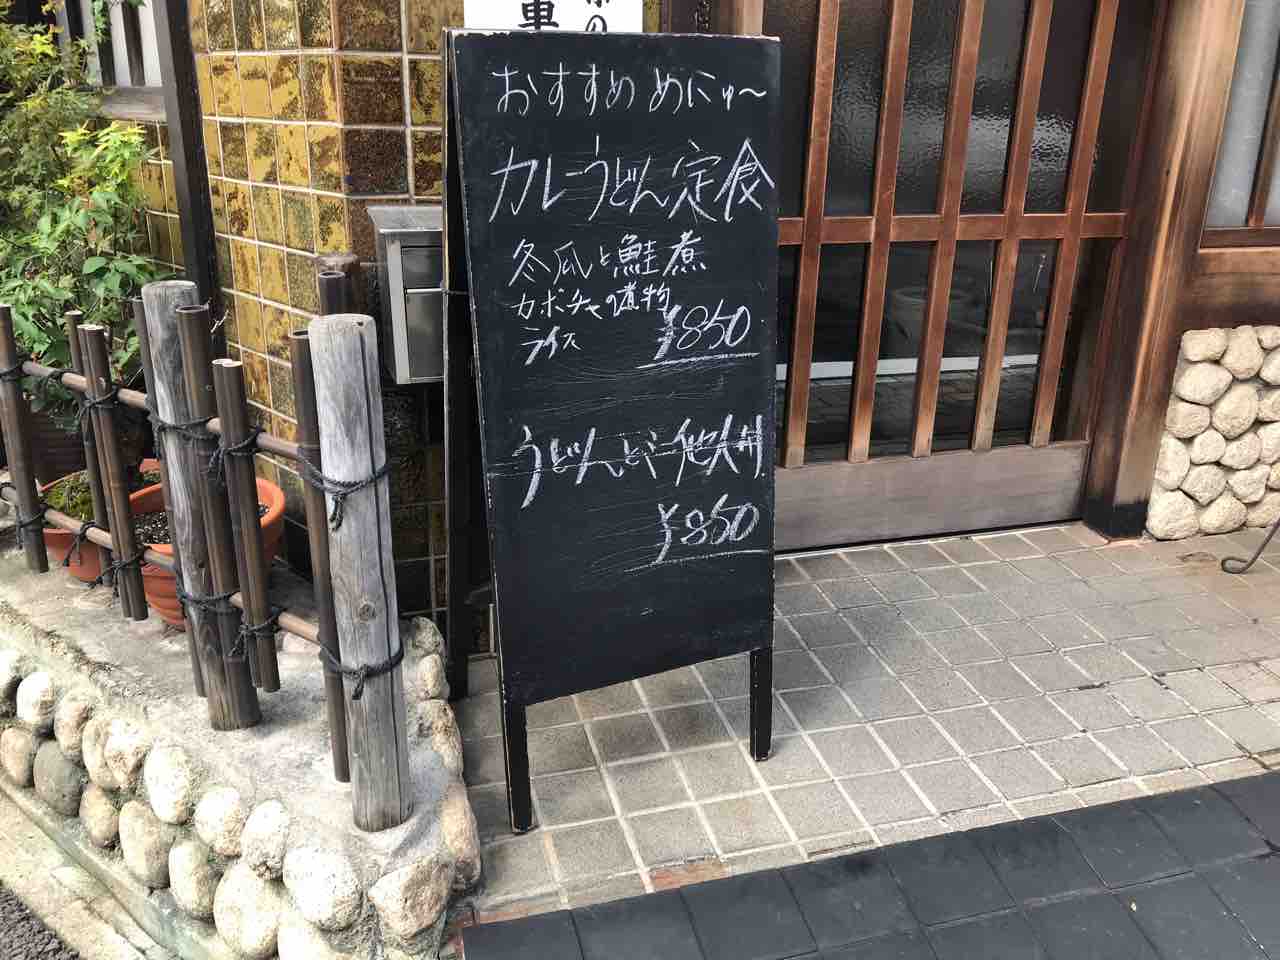 車
の
おすすめ めにゅ〜
カレーうどん定食
冬瓜と鮭煮
カボチャの煮物
ライス
¥850
うどんとミニ他人丼
¥850